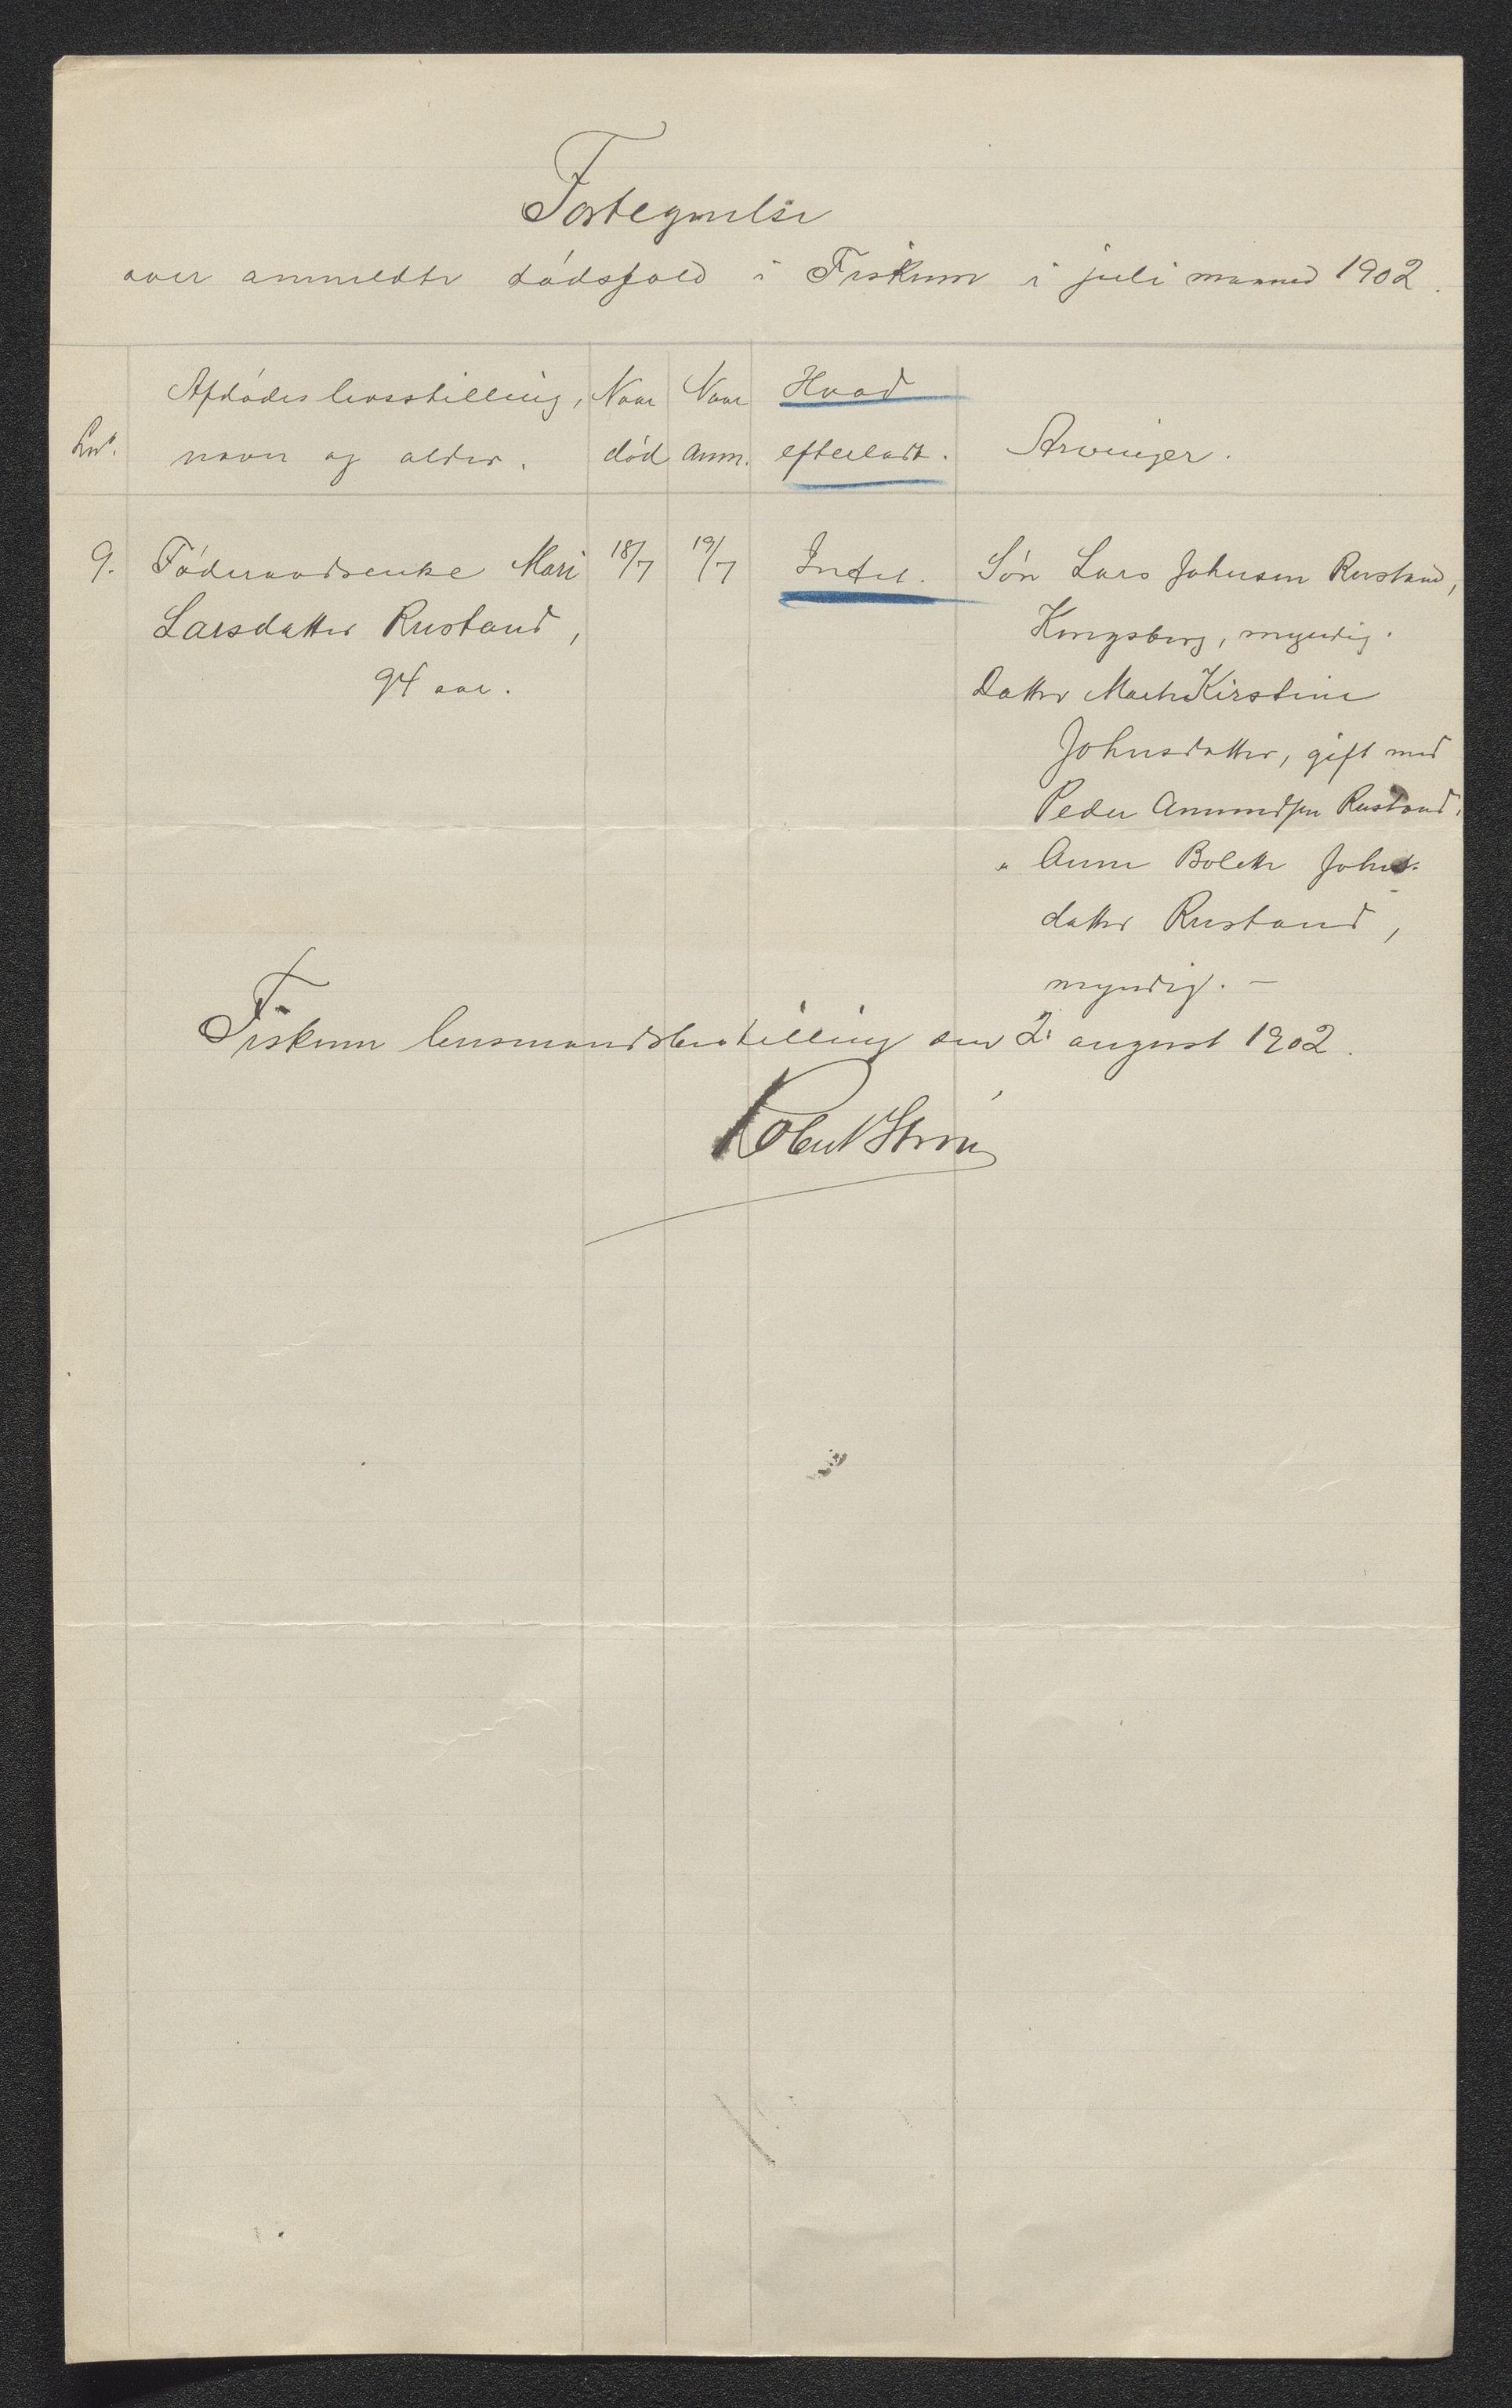 Fortegnelse
over anmeldte dødsfald i Fiskum i juli maaned 1902.
Lnr.
Afdødes livsstilling,
navn og alder.
Naar
død
Naar
anm.
Hvad
efterladt.
Arvinger.
9.
Føderaadsenke Mari
Larsdatter Rustand,
94 aar.
18/7
19/7
Intet.
Søn Lars Johnsen Rustand,
Kongsberg, myndig.
Datter Marthe Kirstine
Johnsdatter, gift med
Peder Amundsen Rustand.
" Anne Bolette Johns-
datter Rustand,
myndig. —
Fiskum lensmandsbestilling den 2. august 1902.
Robert Strøm